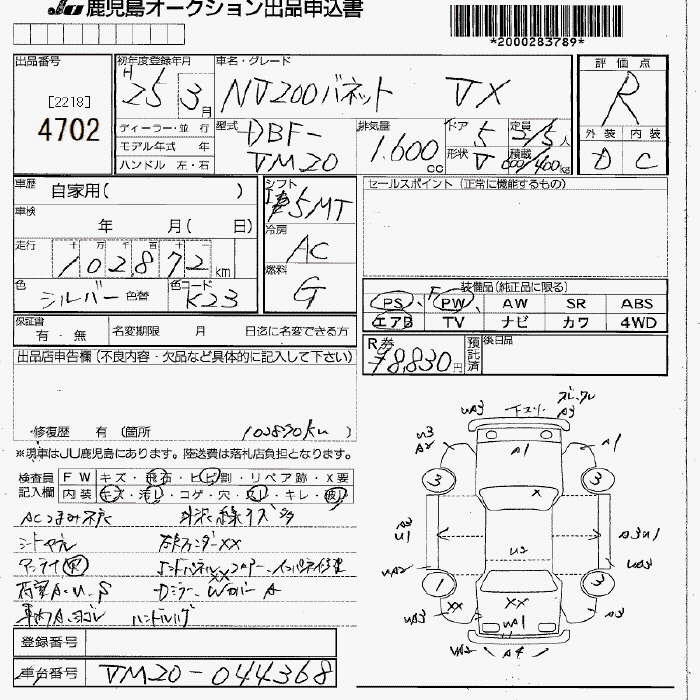 JU 鹿児島オークション出品申込書
*2000283789*
出品番号
[2218]
4702
初年度登録年月
H 25 3月
車名・グレード
NV200バネット VX
評価点
R
外装 内装
D C
ディーラー・並 行
モデル年式 年
ハンドル 左・右
型式
DBF-
VM20
排気量
1.600cc
ドア 5
定員 2/5人
形状 V
積載 600/400kg
車歴 自家用( )
車検
年 月( 日)
走行 十 万 千 百 十 一
102,872km
色 シルバー 色替
色コード K23
シフト
5MT
冷房
AC
燃料
G
セールスポイント(正常に機能するもの)
装備品(純正品に限る)
PS、PW AW SR ABS
エアB TV ナビ カワ 4WD
保証書
有・無
名変期限 月 日迄に名変できる方
R券
¥8,830円
預託済
後日品
出品店申告欄(不良内容・欠品など具体的に記入して下さい)
修復歴 有(箇所 102890km)
※現車はJU鹿児島にあります。陸送費は落札店負担となります。
検査員記入欄
FW キズ・飛石・ヒビ割・リペア跡・X要
内装 キズ・汚レ・コゲ・穴・スレ・キレ・破レ
ACつまみ不良
シートヤブレ
右Fフェンダー XX
荷室A・U・S
Dミラー Wカバー A
車内A、ヨゴレ
登録番号
車台番号 VM20-044368
UA3 下スリ A3
U3
A2
A1
A1
3
3
X
A3
U1
U2
A3U1
UA2
UA3
1
3
XX
XX
UA3
UA1
A3
UA2
A4